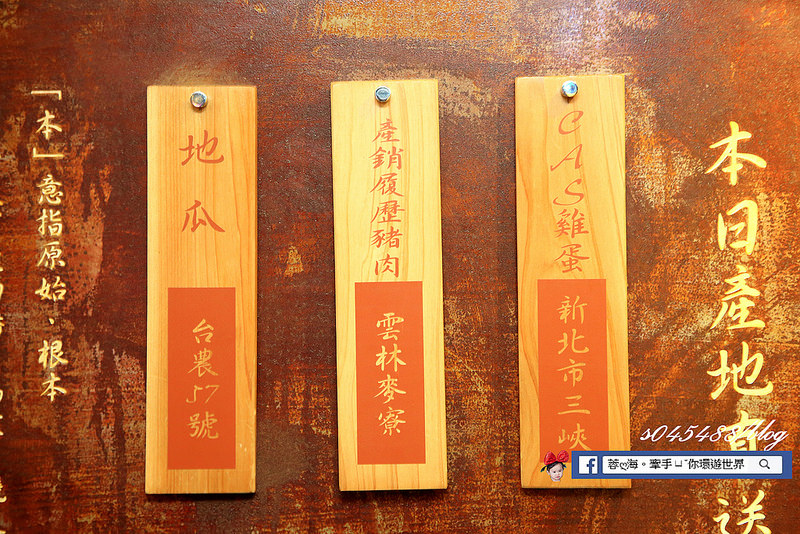 本日產地直送
CAS雞蛋
新北市三峽
產銷履歷豬肉
雲林麥寮
地瓜
台農57號
「本」意指原始·根本
s045488 blog
蓉ღ海。牽手ㄩˇ你環遊世界